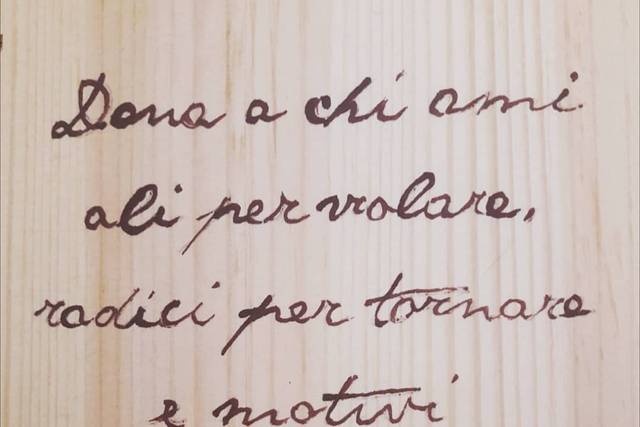 Dona a chi ami
ali per volare,
radici per tornare
e motivi